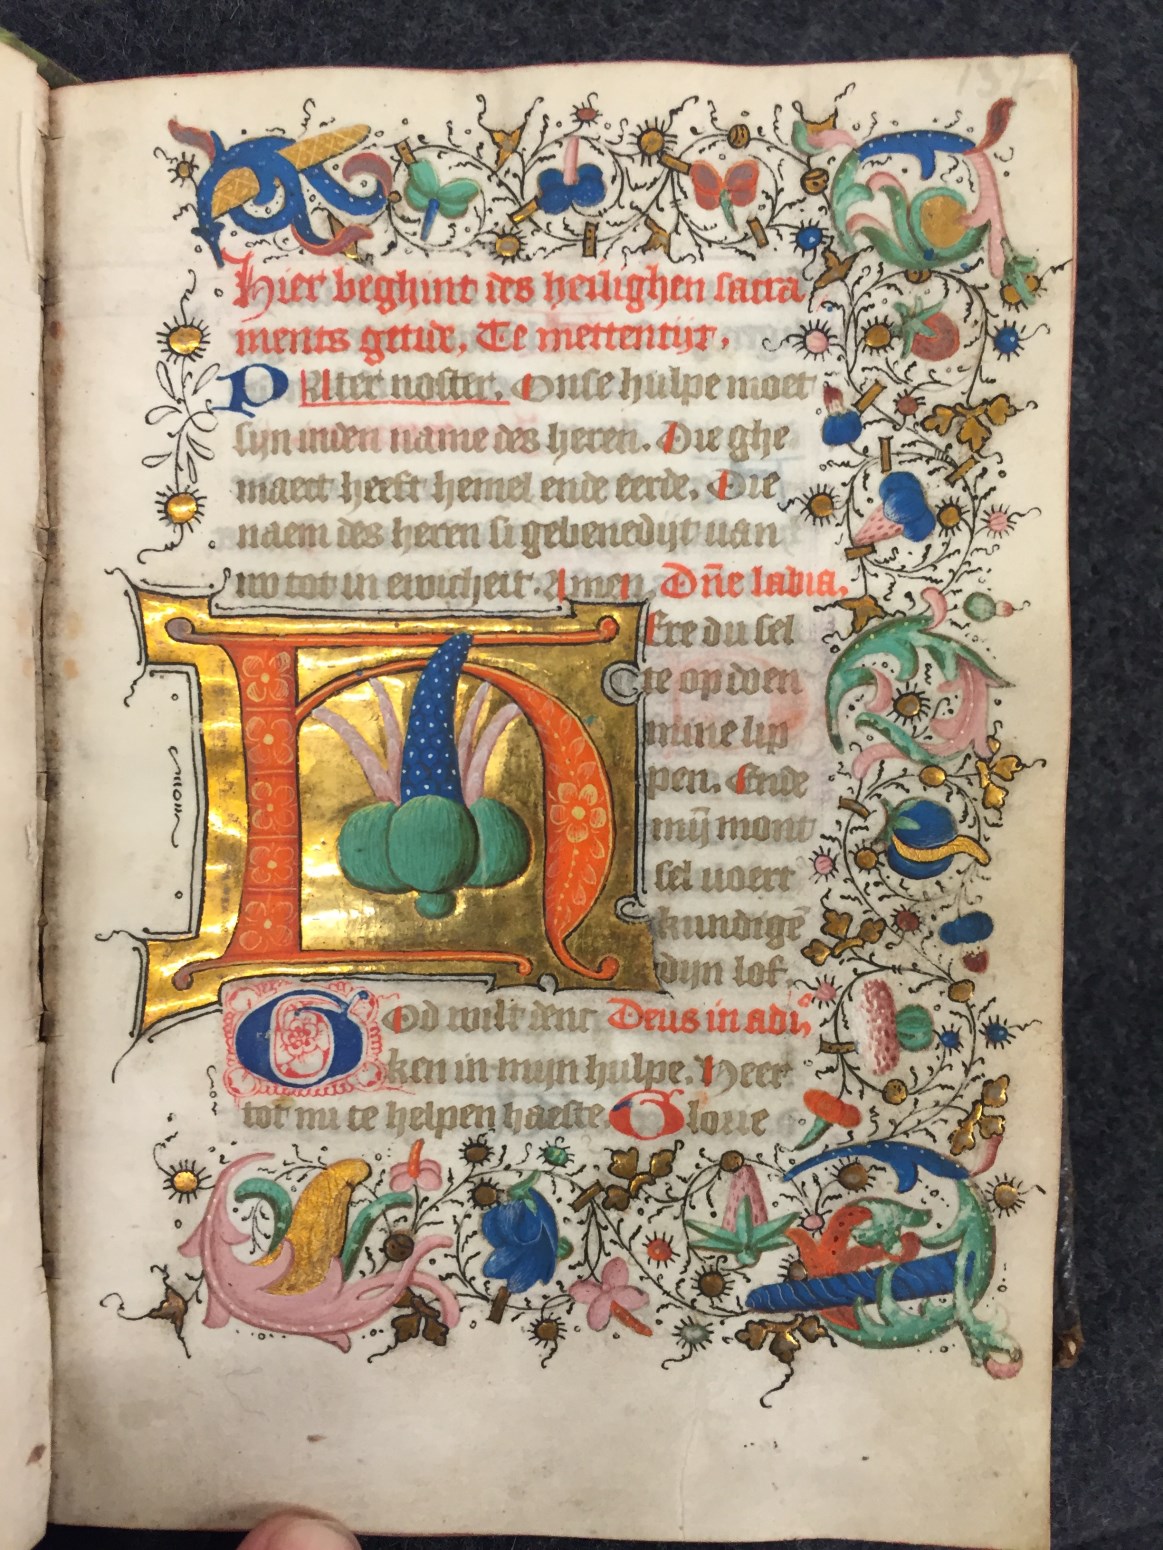 137
Hier beghint des heilighen sacra
ments getide. Te mettentijt.
PAter noster. Onse hulpe moet
sijn inden name des heren. Die ghe
maect heeft hemel ende eerde. Die
naem des heren si gebenedijt uan
nu tot in ewicheit. Amen. Dn̄e labia.
HEre du sel
te op doen
mine lip
pen. Ende
mij mont
sel uoert
kundigē
dijn lof.
GOd wilt denc Deus in adiu
ken in mijn hulpe. Heer
tot mi te helpen haeste. Glorie